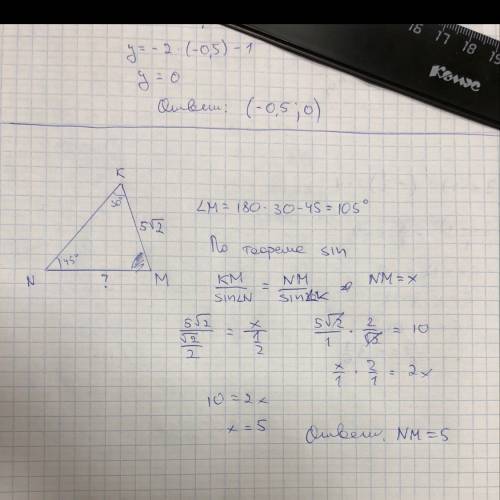 16 17 18 19
Комус
y = -2 · (-0,5) - 1
y = 0
Ответ: (-0,5; 0)
K
30°
5√2
45°
N ? M
∠M = 180 - 30 - 45 = 105°
По теореме sin
KM/sin∠N = NM/sin∠K NM = x
5√2/(√2/2) = x/(1/2) 5√2/1 · 2/√2 = 10
x/1 · 2/1 = 2x
10 = 2x
x = 5
Ответ. NM = 5